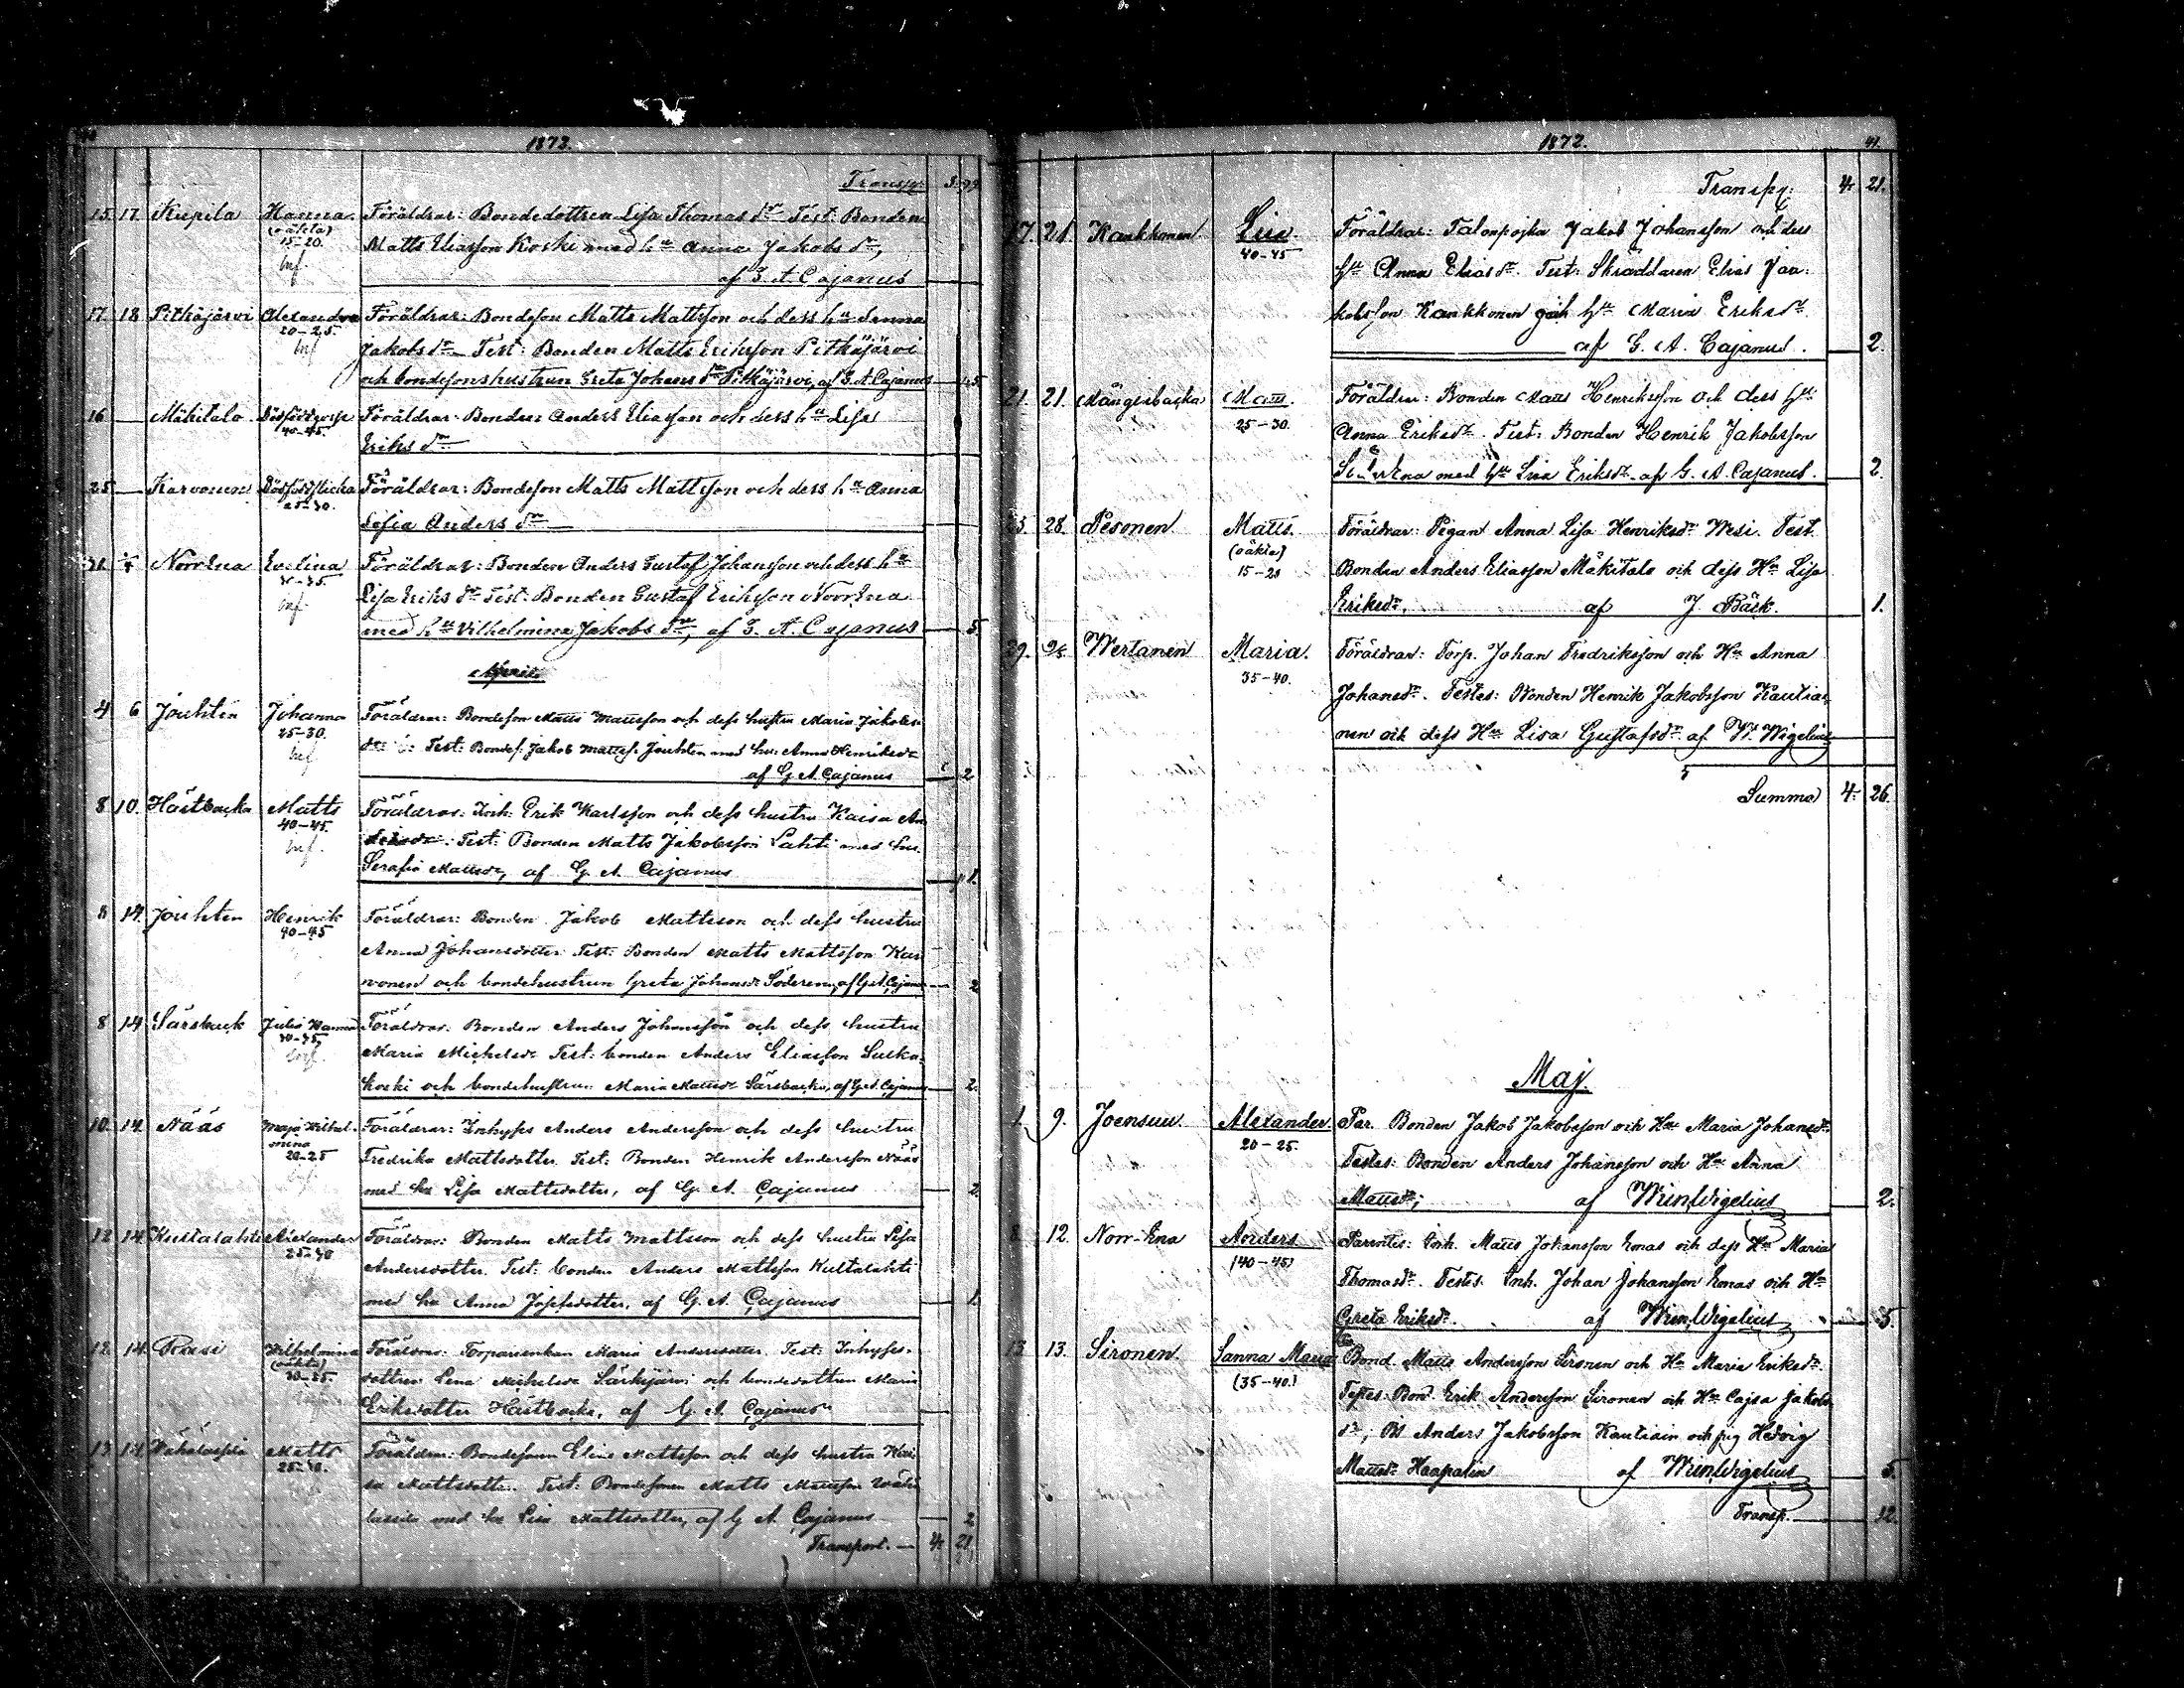 1873.
Transp: 3. 99
15. 17. Kupila Hanna Föräldrar: Bondedottren Lisa Thomas dr Test: Bonden
(oäkta) 15-20. Matts Eliasson Koski med hu Anna Jakobs dr,
af G. A. Cajanus
17. 18 Pitkäjärvi Alexandra Föräldrar: Bondeson Matts Mattsson och dess hu Sanna
20-25 Jakobs dr Test: Bonden Matts Eriksson Pitkäjärvi
och bondesonshustrun Greta Johans dr Pitkäjärvi, af G. A. Cajanus
16 — Mäkitalo Dödfödt gosse Föräldrar: Bonden Anders Eliasson och dess hu Lisa
40-45. Eriks dr
25 — Karvonen Dödfödd flicka Föräldrar: Bondeson Matts Mattsson och dess hu Anna
25-30. Sofia Anders dr
Norr Ena Evelina Föräldrar: Bonden Anders Gustaf Johansson och dess hu
Lisa Eriks dr Test: Bonden Gustaf Eriksson Norr Ena
med hu Vilhelmina Jakobs dr, af G. A. Cajanus — 5.
April
4 6 Jouhten Johanna Föräldrar: Bondeson Matts Mattsson och dess hustru Maria Jakobs
25-30. Test: Bondes. Jakob Mattss. Jouhten med hu: Anna Henriksdr
af G. A. Cajanus 2
8 10. Hästbacka Matts Föräldrar: Inh: Erik Karlsson och dess hustru Kaisa An
40-45. Test: Bonden Matts Jakobsson Lahti med hu.
Serafia Mattsdr, af G. A. Cajanus 1.
8 14. Jouhten Henrik Föräldrar: Bonden Jakob Mattsson och dess hustru
40-45 Anna Johansdotter Test: Bonden Matts Mattsson Kar
vonen och bondehustrun Greta Johansdr Söderena, af G. A. Cajanus 2
8 14 Särsback Julia Hanna Föräldrar: Bonden Anders Johansson och dess hustru
Maria Michelsdr Test: bonden Anders Eliasson Suska
koski och bondehustrun Maria Mattsdr Särsbacka, af G. A. Cajanus 2.
10. 14. Nääs Maja Wilhel- Föräldrar: Inhyses Anders Andersson och dess hustru
mina 20-25 Fredrika Mattsdotter Test: Bonden Henrik Andersson Nääs
med hu Lisa Mattsdotter, af G. A. Cajanus 2
12 14. Kultalahti Alexander Föräldrar: Bonden Matts Mattsson och dess hustru Lisa
Andersdotter. Test: bonden Anders Mattsson Kultalahti
med hu Anna Josefsdotter, af G. A. Cajanus 1.
12. 14. Wilhelmina Föräldrar: Torparenkan Maria Andersdotter. Test: Inhyses-
(oäkta) dottren Lena Michelsdr Särkijärvi och bondedottren Maria
Eriksdotter Hästbacka, af G. A. Cajanus
13. 14 Matts Föräldrar: Bondesonen Elias Mattsson och dess hustru Kai
sa Mattsdotter. Test: Bondesonen Matts Mattsson Wähä
lassila med hu Lisa Mattsdotter, af G. A. Cajanus 2
Transport. — 4. 21
1872. 41.
Transp: 4. 21.
17. 21. Kankkonen. Lisa. Föräldrar: Talonpojka Jakob Johansson och dess
40-45 hu Anna Eliasdr. Test: Skräddaren Elias Jaa-
kobsson Kankkonen och hu Maria Eriksdr.
af G. A. Cajanus. 2.
21. 21. Mångsbacka Matts. Föräldrar: Bonden Matts Henriksson och dess hu
25-30. Anna Eriksdr. Test: Bonden Henrik Jakobsson
med hu Lisa Eriksdr. af G. A. Cajanus. 2.
28. Pesonen Matts. Föräldrar: Pigan Anna Lisa Henriksdr Wesi. Test
(oäkta) Bonden Anders Eliasson Mäkitalo och dess Hu Lisa
Eriksdr. af J. Bäck. 1.
29. Wertanen Maria. Föräldrar: Torp. Johan Fredriksson och Hu Anna
35-40. Johansdr. Testes: Bonden Henrik Jakobsson Kautiai-
nen och dess Hu Lisa Gustafsdr. af W. Wigelius
Summa 4. 26.
Maj.
1. 9. Joensuu. Alexander. Par. Bonden Jakob Jakobsson och Hu Maria Johansdr.
20-25. Testes: Bonden Anders Johansson och Hu Anna
Mattsdr; af Wm Wigelius 2.
8. 12. Norr-Ena Anders Parentes: Inh. Matts Johansson Emas och dess Hu Maria
(40-45) Thomasdr. Testes. Inh. Johan Johansson Emas och Hu
Greta Eriksdr. af Wm Wigelius 5.
13 13. Sironen. Sanna Maria Bond. Matts Andersson Sironen och Hu Maria Eriksdr.
(35-40.) Testes: Bond. Erik Andersson Sironen och Hu Cajsa Jakobs
dr, Bs Anders Jakobsson Kautiain och pig Hedvig
Mattsdr Haapalin af Wm Wigelius 5.
Transp. 12.